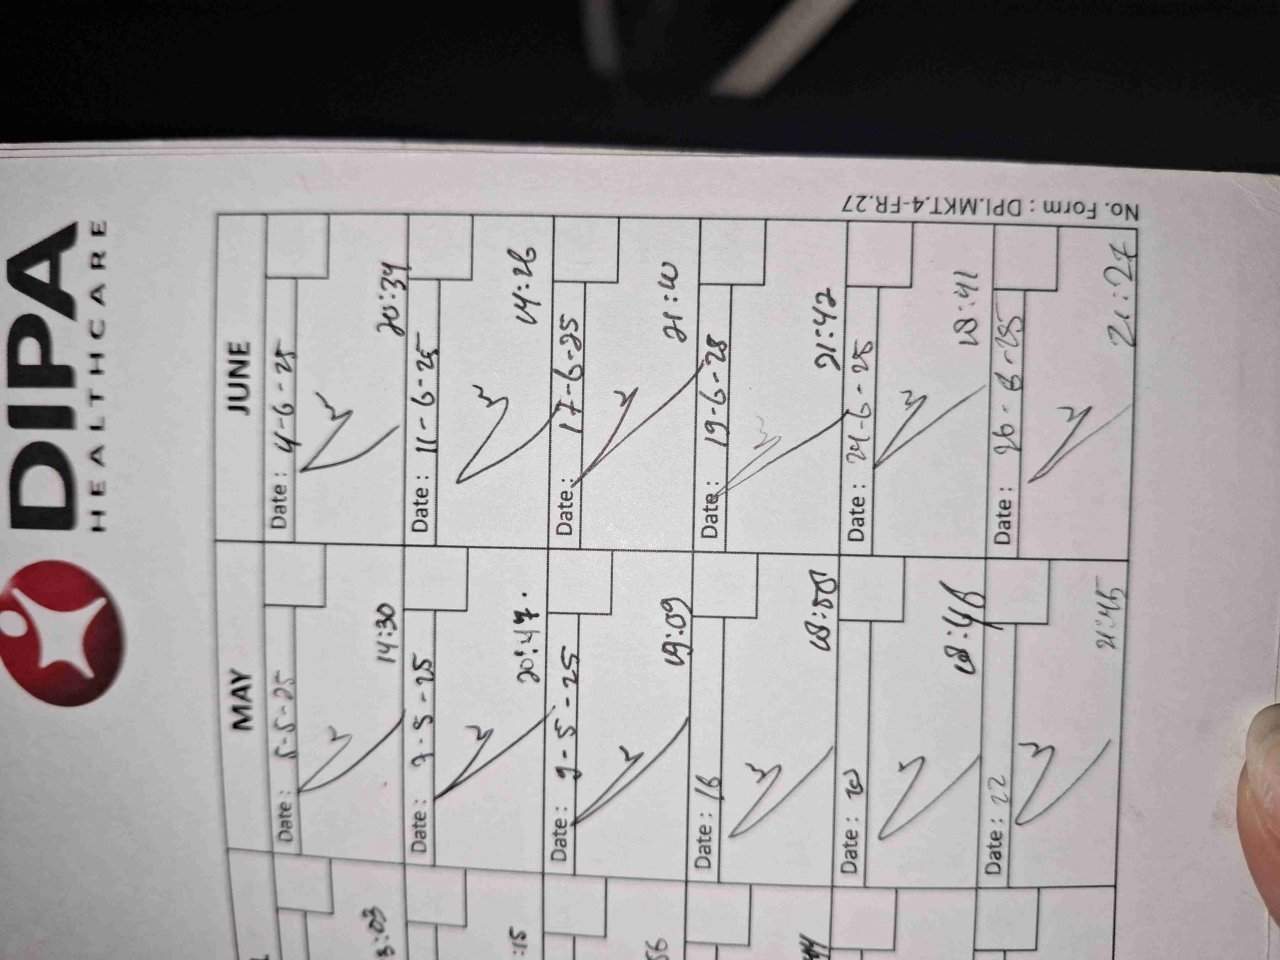 DIPA
HEALTHCARE
MAY
JUNE
Date : 5-5-25
14:30
Date : 4-6-25
20:34
Date : 7-5-25
20:47.
Date : 11-6-25
14:26
Date : 9-5-25
19:09
Date : 17-6-25
Date : 16
Date : 19-6-25
21:42
Date :
18:46
Date : 24-6-25
18:41
Date : 22
21:45
Date :
21:27
:15
No. Form : DPI.MKT.4-FR.27